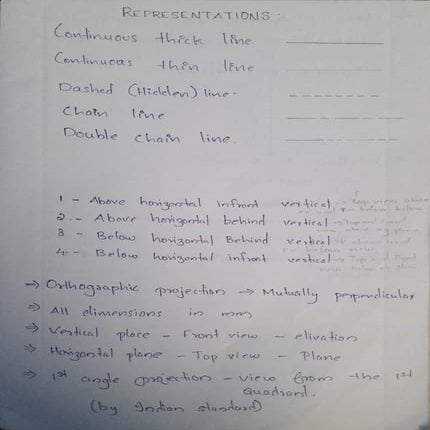 REPRESENTATIONS:
Continuous thick line
Continuous thin line
Dashed (Hidden) line.
Chain line
Double chain line.
1 - Above horizontal infront vertical → Top view above
2 - Above horizontal behind vertical →
3 - Below horizontal Behind vertical →
4 - Below horizontal infront vertical → Top and Front
→ Orthographic projection → Mutually perpendicular
⇒ All dimensions in mm
⇒ Vertical place - Front view - elivation
⇒ Horizontal plane - Top view - Plane
⇒ 1st angle projection - view from the 1st
Quadrant.
(by Indian standard)